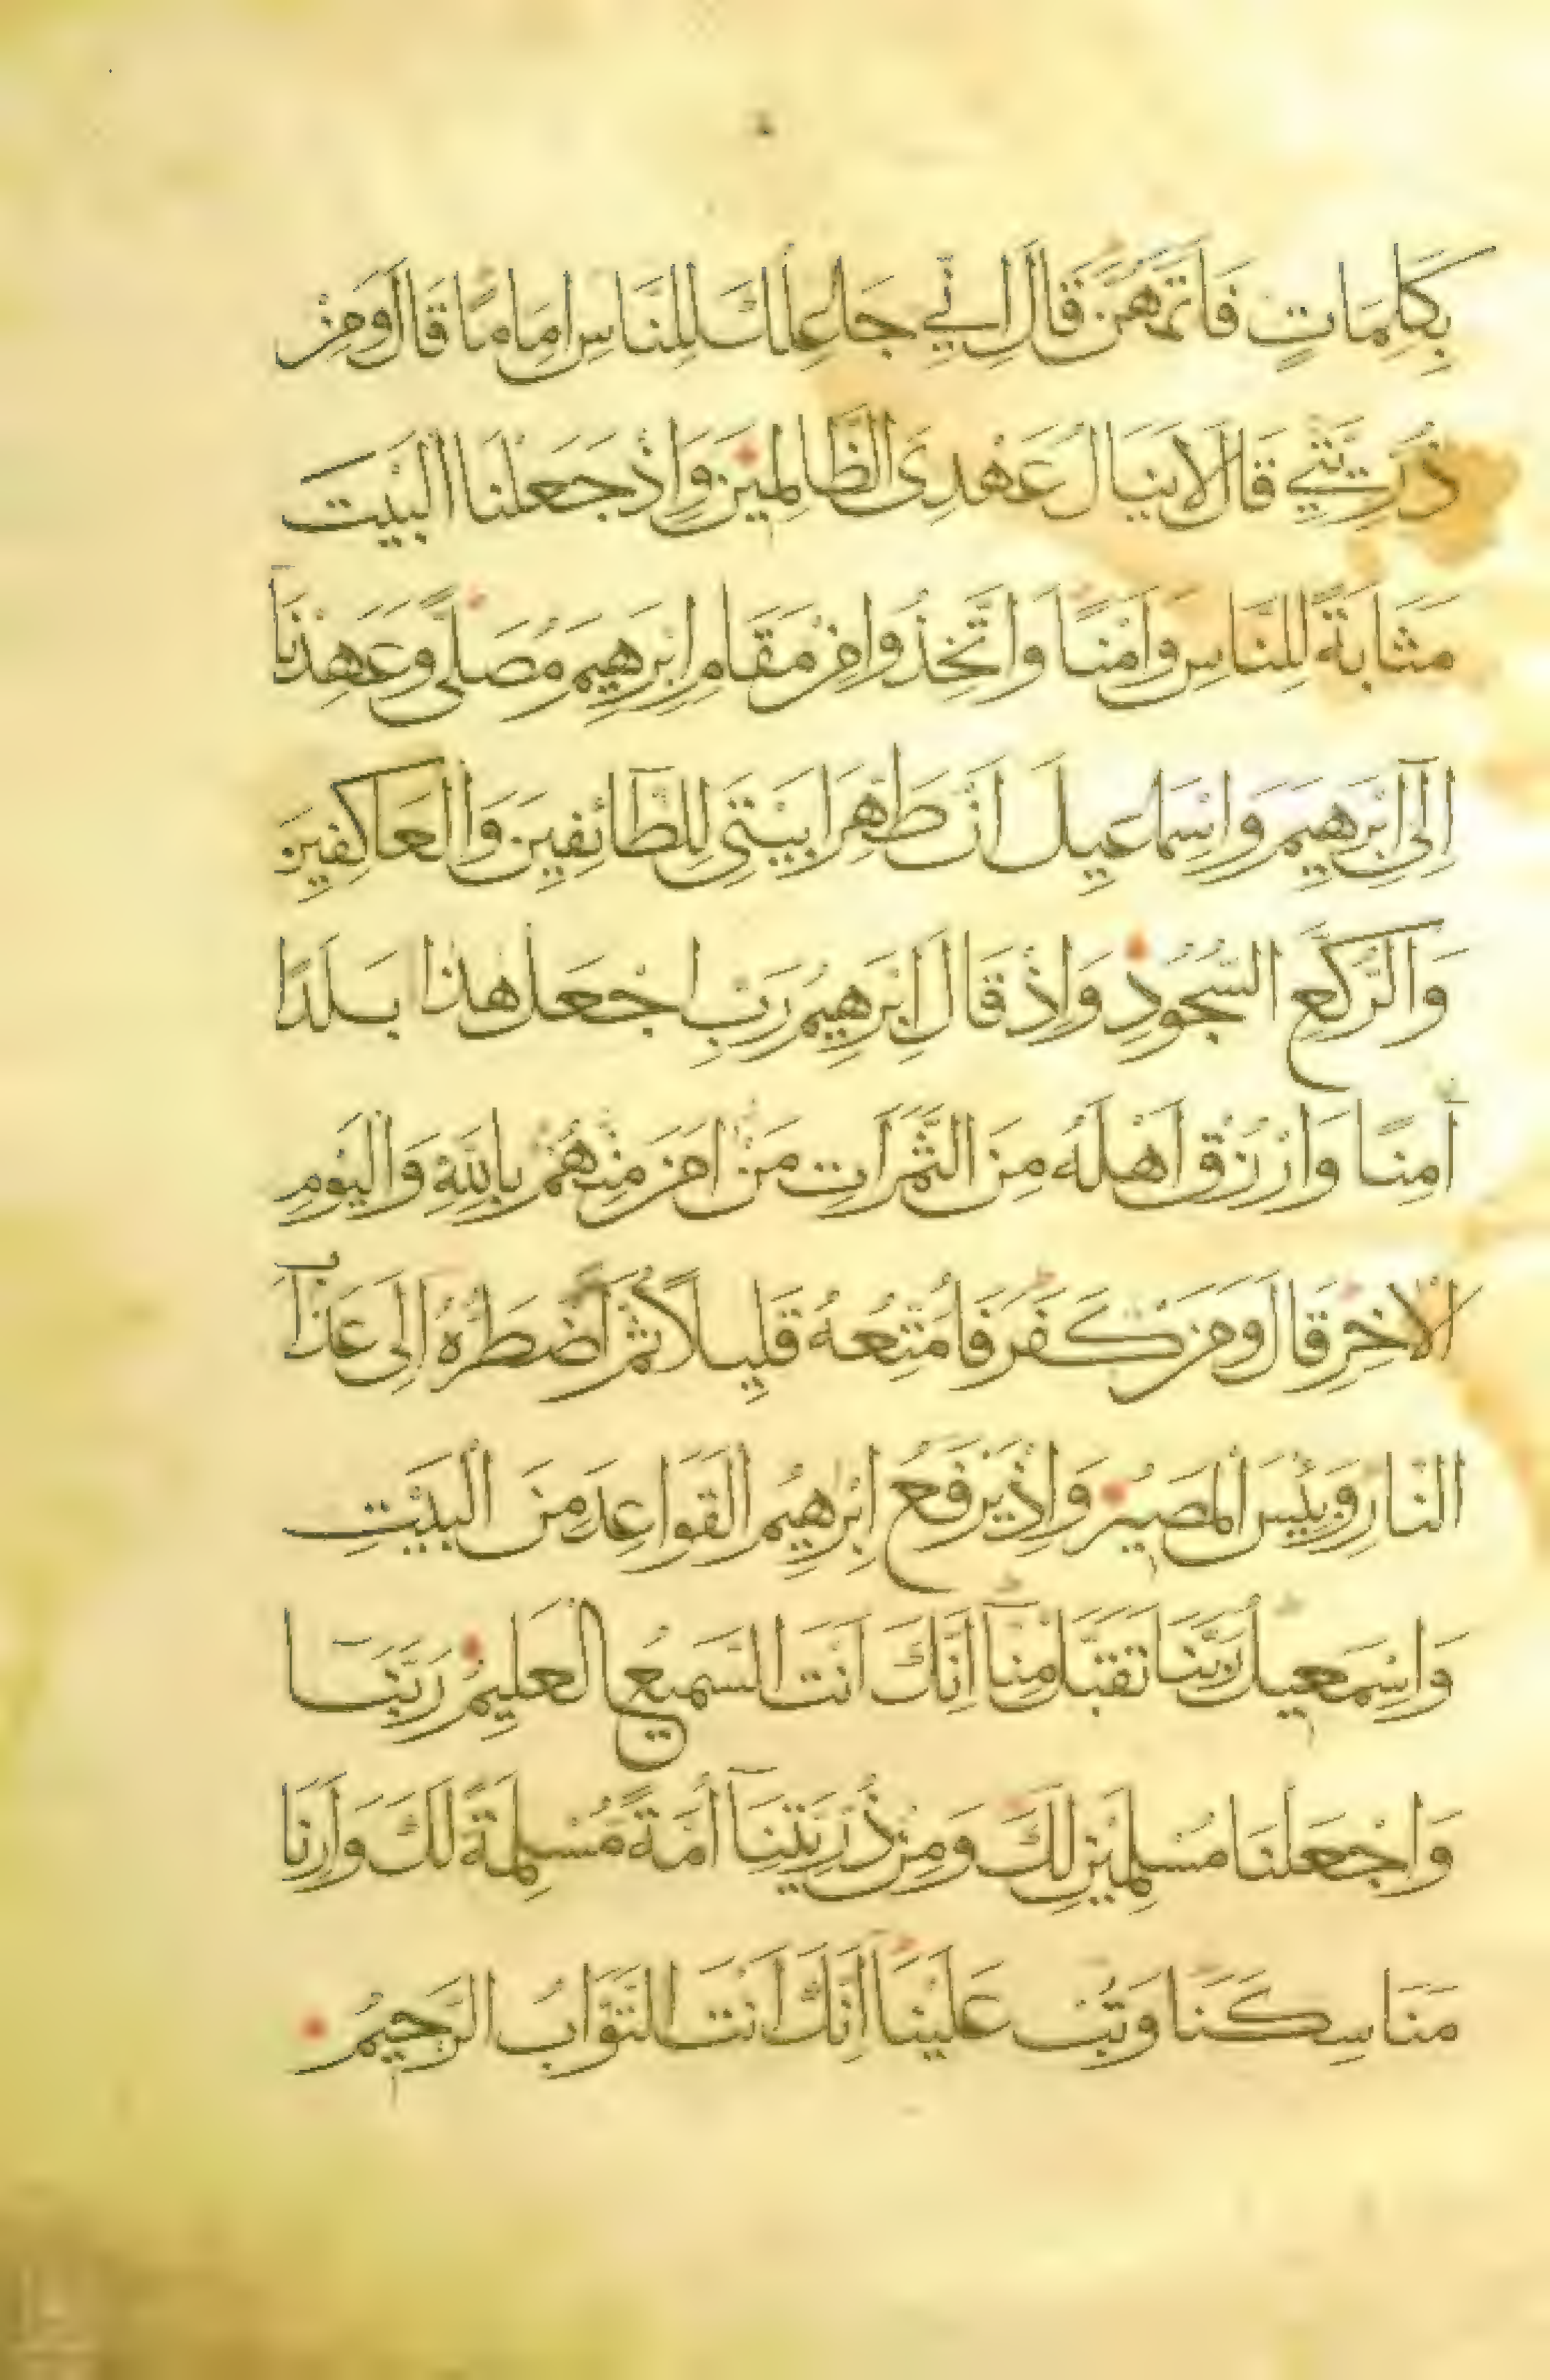 بِكَلِمَاتٍ فَاَتَمَّهُنَّ قَالَ اِنّٖي جَاعِلُكَ لِلنَّاسِ اِمَامًا قَالَ وَمِنْ
ذُرِّيَّتٖي قَالَ لَا يَنَالُ عَهْدِى الظَّالِمٖينَ وَاِذْ جَعَلْنَا الْبَيْتَ
مَثَابَةً لِلنَّاسِ وَاَمْنًا وَاتَّخِذُوا مِنْ مَقَامِ اِبْرٰهٖيمَ مُصَلًّى وَعَهِدْنَآ
اِلٰٓى اِبْرٰهٖيمَ وَاِسْمَاعٖيلَ اَنْ طَهِّرَا بَيْتِىَ لِلطَّٓائِفٖينَ وَالْعَاكِفٖينَ
وَالرُّكَّعِ السُّجُودِ وَاِذْ قَالَ اِبْرٰهٖيمُ رَبِّ اجْعَلْ هٰذَا بَلَدًا
اٰمِنًا وَارْزُقْ اَهْلَهُ مِنَ الثَّمَرَاتِ مَنْ اٰمَنَ مِنْهُمْ بِاللّٰهِ وَالْيَوْمِ
الْاٰخِرِ قَالَ وَمَنْ كَفَرَ فَاُمَتِّعُهُ قَلٖيلًا ثُمَّ اَضْطَرُّهُ اِلٰى عَذَابِ
النَّارِ وَبِئْسَ الْمَصٖيرُ وَاِذْ يَرْفَعُ اِبْرٰهٖيمُ الْقَوَاعِدَ مِنَ الْبَيْتِ
وَاِسْمٰعٖيلُ رَبَّنَا تَقَبَّلْ مِنَّآ اِنَّكَ اَنْتَ السَّمٖيعُ الْعَلٖيمُ رَبَّنَا
وَاجْعَلْنَا مُسْلِمَيْنِ لَكَ وَمِنْ ذُرِّيَّتِنَآ اُمَّةً مُسْلِمَةً لَكَ وَاَرِنَا
مَنَاسِكَنَا وَتُبْ عَلَيْنَا اِنَّكَ اَنْتَ التَّوَّابُ الرَّحٖيمُ